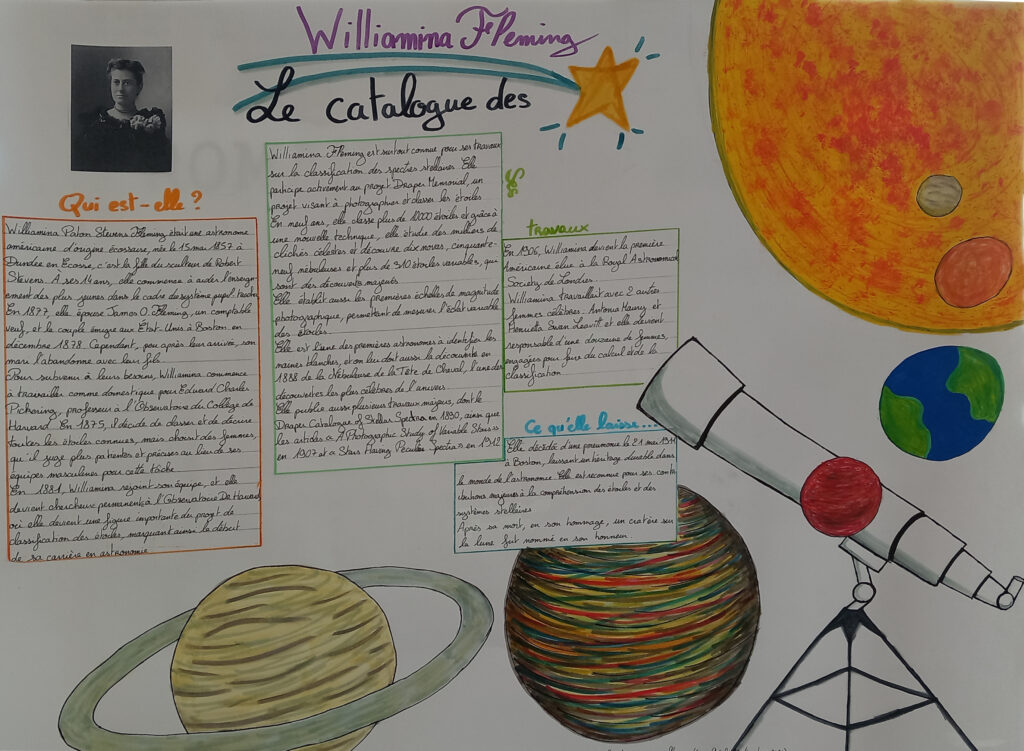 Williamina Fleming
Le catalogue des
Qui est-elle ?
Williamina Paton Stevens Fleming était une astronome
américaine d'origine écossaise, née le 15 mai 1857 à
Dundee en Ecosse, c'est la fille du sculteur de Robert
Stevens. À ses 14 ans, elle commence à aider l'enseign-
ement des plus jeunes dans le cadre de système pupil-teacher
En 1877, elle épouse James O. Fleming, un comptable
veuf, et le couple émigre aux Etat-Unis à Boston en
décembre 1878. Cependant, peu après leur arrivée, son
mari l'abandonne avec leur fils.
Pour subvenir à leurs besoins, Williamina commence
à travailler comme domestique pour Edward Charles
Pickering, professeur à l'Observatoire du Collège de
Harvard. En 1875, il décide de classer et de décrire
toutes les étoiles connues, mais choisit des femmes,
qu'il juge plus patientes et précises au lieu de ses
équipes masculines pour cette tâche.
En 1881, Williamina rejoint son équipe, et elle
devient chercheuse permanente à l'Observatoire De Harvard
où elle devient une figure importante du projet de
classification des étoiles, marquant ainsi le début
de sa carrière en astronomie.
Williamina Fleming est surtout connue pour ses travaux
sur la classification des spectres stellaires. Elle
participe activement au projet Draper Memorial, un
projet visant à photographier et classer les étoiles.
En neuf ans, elle classe plus de 10000 étoiles et grâce à
une nouvelle technique, elle étudie des milliers de
clichés célestes et découvre dix novas, cinquante-
neuf nébuleuses et plus de 310 étoiles variables, qui
sont des découvertes majeures
Elle établit aussi les premières échelles de magnitude
photographique, permettant de mesurer l'éclat variable
des étoiles.
Elle est l'une des premières astronomes à identifier les
naines blanches, et on lui doit aussi la découverte en
1888 de la Nébuleuse de la Tête de Cheval, l'une des
découvertes les plus célèbres de l'univers.
Elle publie aussi plusieurs travaux majeurs, dont le
Draper Catalogue of Stellar Spectra en 1890, ainsi que
les articles « A Photographic Study of Variable Stars »
en 1907 et « Stars Having Peculiar Spectra » en 1912
Ses
travaux
En 1906, Williamina devient la première
Américaine élue à la Royal Astronomical
Society de Londres
Williamina travaillait avec 2 autres
femmes célèbres : Antonia Maury et
Henrietta Swan Leavitt et elle devient
responsable d'une douzaine de femmes,
engagées pour faire du calcul et de la
classification.
Ce qu'elle laisse...
Elle décède d'une pneumonie le 21 mai 1911
à Boston, laissant un héritage durable dans
le monde de l'astronomie. Elle est reconnue pour ses contri-
butions majeures à la compréhension des étoiles et des
systèmes stellaires
Après sa mort, en son hommage, un cratère sur
la lune fut nommé en son honneur.